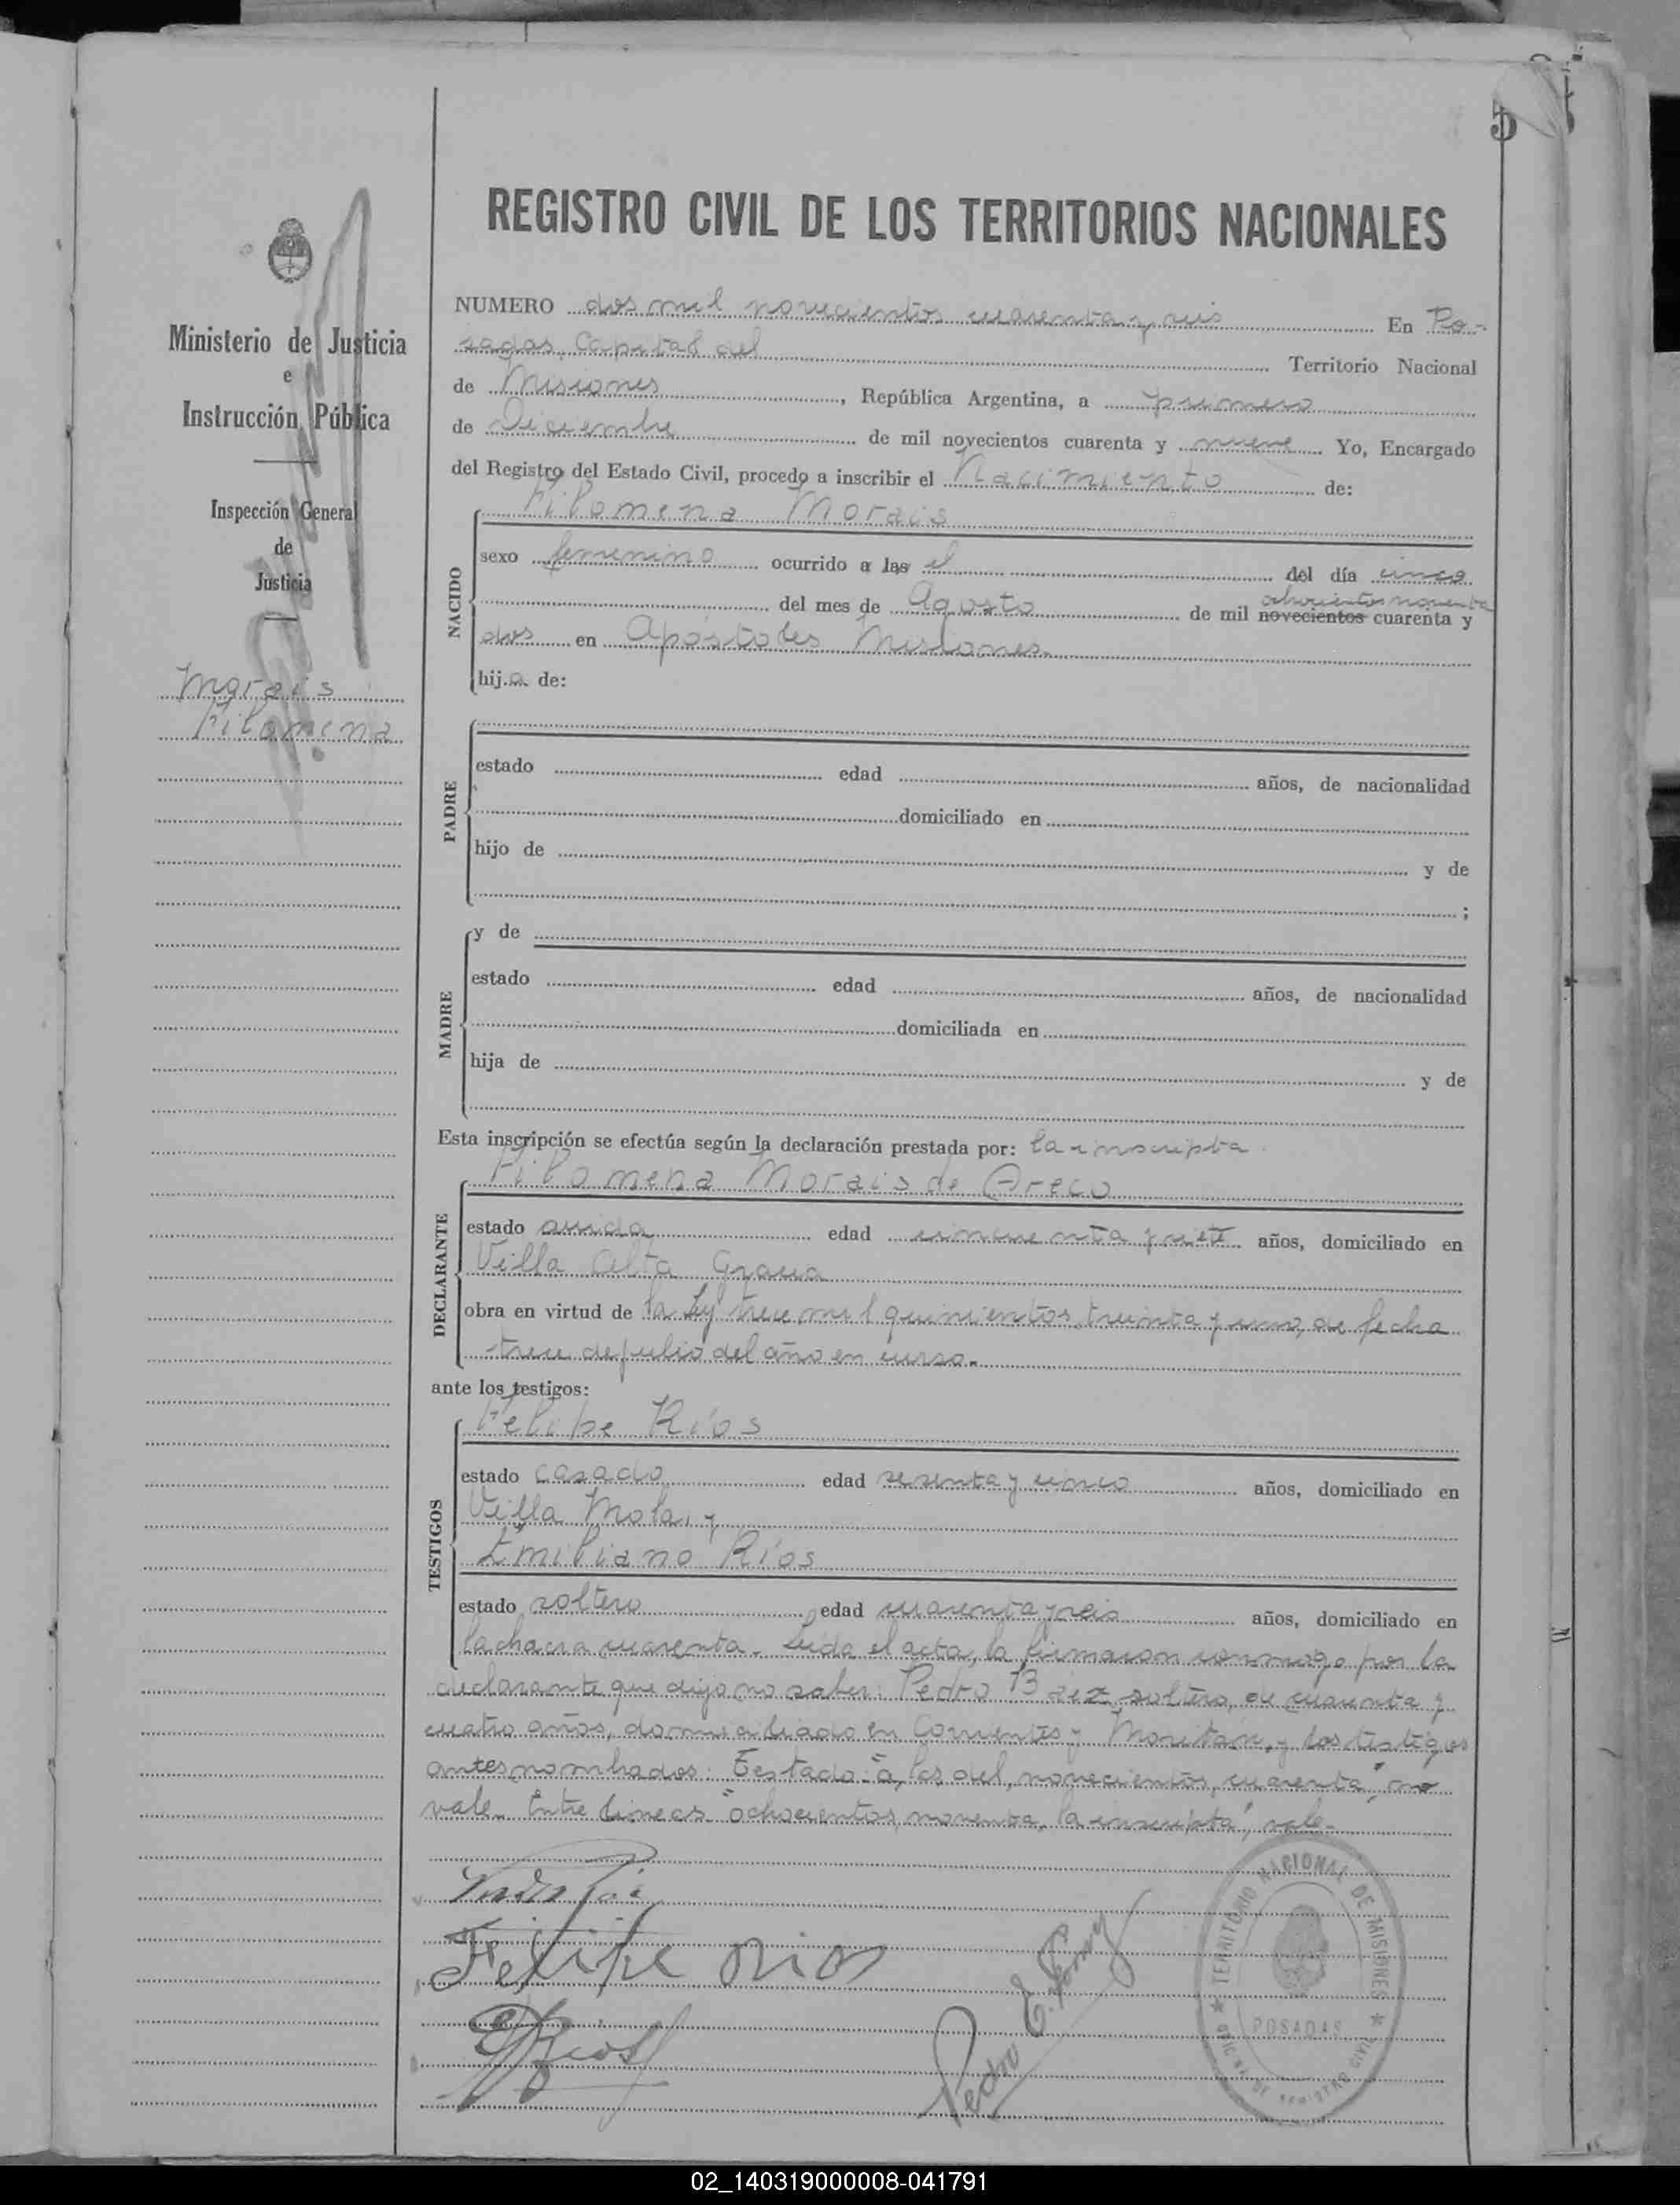 REGISTRO CIVIL DE LOS TERRITORIOS NACIONALES
Ministerio de Justicia
e
Instrucción Pública
Inspección General
de
Justicia
Morais
Filomena
NUMERO dos mil novecientos cuarenta y seis En Po-
sadas, Capital del Territorio Nacional
de Misiones, República Argentina, a primero
de Diciembre de mil novecientos cuarenta y nueve Yo, Encargado
del Registro del Estado Civil, procedo a inscribir el Nacimiento de:
Filomena Morais
NACIDO
sexo femenino ocurrido a las el del día cinco
ochocientos noventa
del mes de Agosto de mil novecientos cuarenta y
dos en Apóstoles Misiones.
hij.a. de:
PADRE
estado edad años, de nacionalidad
domiciliado en
hijo de y de
;
MADRE
y de
estado edad años, de nacionalidad
domiciliada en
hija de y de
Esta inscripción se efectúa según la declaración prestada por: la inscripta
DECLARANTE
Filomena Morais de Areco
estado edad cincuenta y siete años, domiciliado en
Villa Alta Gracia
obra en virtud de la Ley trece mil quinientos treinta y uno, de fecha
trece de julio del año en curso.
ante los testigos:
TESTIGOS
Felipe Ríos
estado casado edad sesenta y cinco años, domiciliado en
Villa Mola, y
Emiliano Ríos
estado soltero edad cuarenta y seis años, domiciliado en
la chacra cuarenta. Leída el acta, la firmaron conmigo por la
declarante que dijo no saber: Pedro Baez soltero, de cuarenta y
cuatro años, domiciliado en Corrientes y y los testigos
antes nombrados: Testado: "a, las, del, novecientos, cuarenta", no
vale. Entre lineas "ochocientos, noventa, la inscripta", vale.
Felipe Rios
E Rios
Pedro E.
TERRITORIO NACIONAL DE MISIONES
POSADAS
OFICINA DE REGISTRO CIVIL
02_140319000008-041791